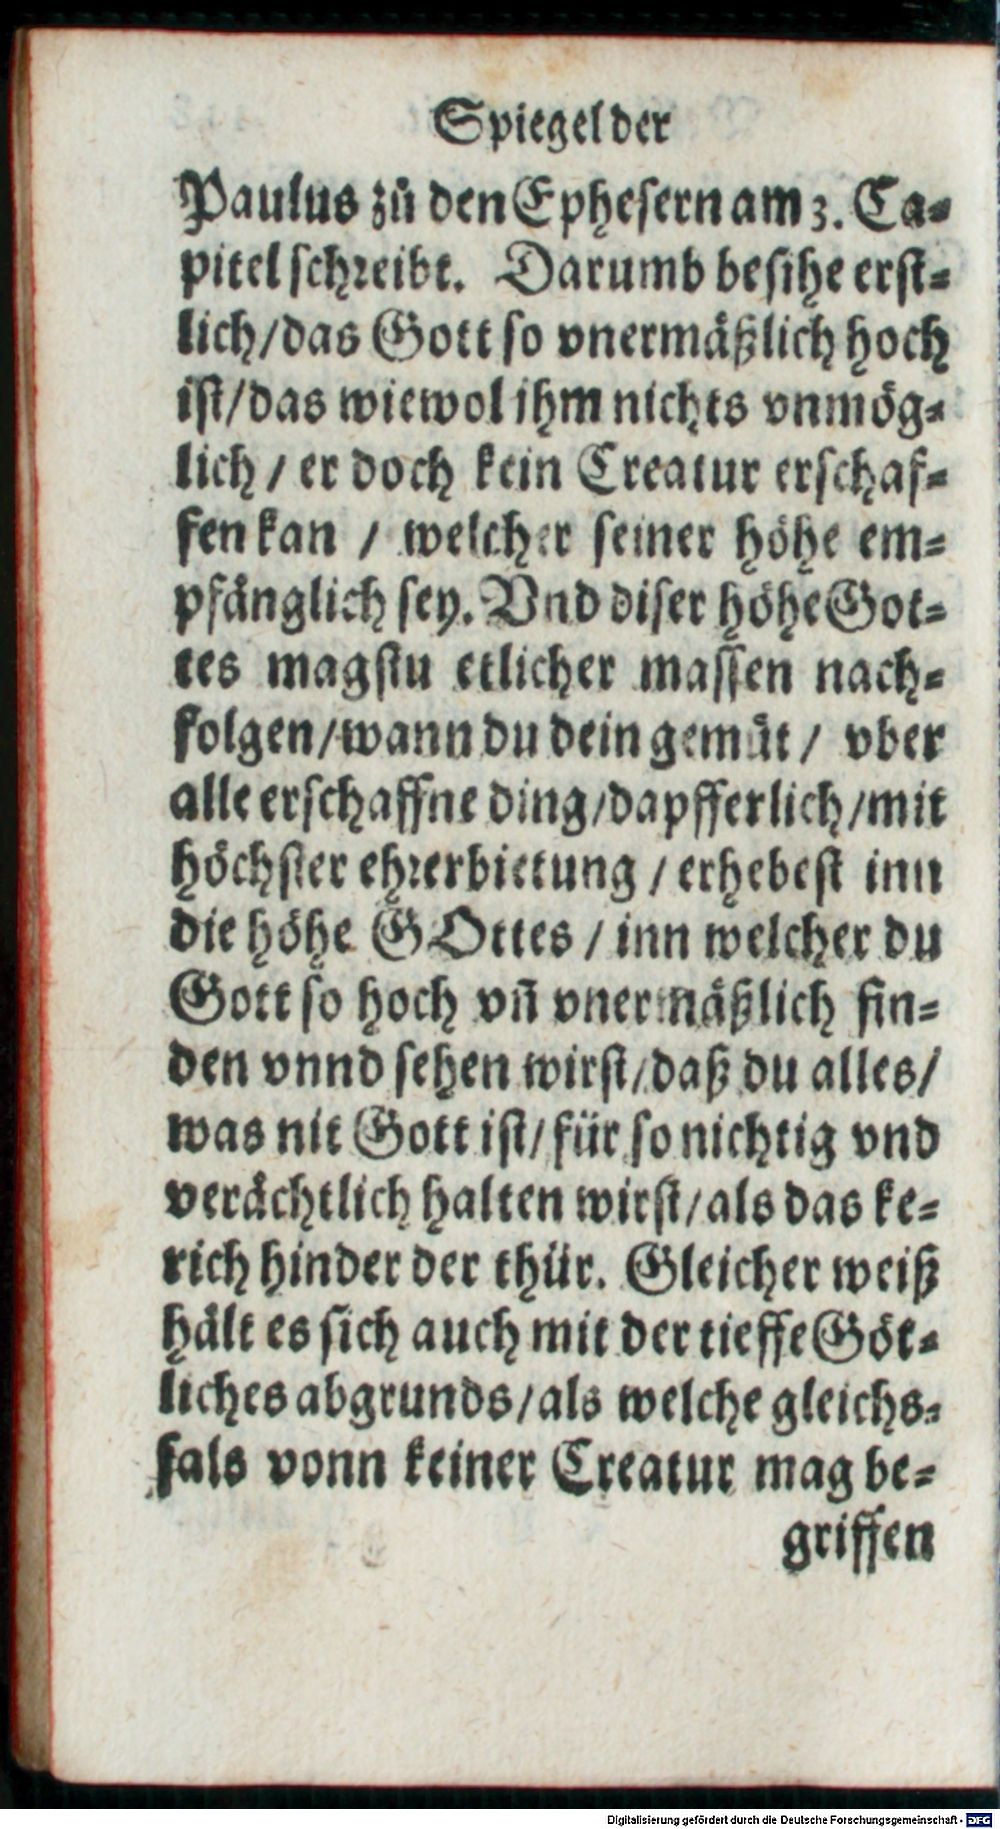 Spiegel der
Paulus zů den Ephesern am 3. Ca-
pitel schreibt. Darumb besihe erst-
lich/das Gott so vnermäßlich hoch
ist/das wiewol ihm nichts vnmög-
lich / er doch kein Creatur erschaf-
fen kan / welcher seiner höhe em-
pfänglich sey. Vnd diser höhe Got-
tes magstu etlicher massen nach-
folgen/wann du dein gemüt / vber
alle erschaffne ding/dapfferlich/mit
höchster ehrerbietung / erhebest inn
die höhe GOttes / inn welcher du
Gott so hoch vñ vnermäßlich fin-
den vnnd sehen wirst/daß du alles/
was nit Gott ist/für so nichtig vnd
verächtlich halten wirst/als das ke-
rich hinder der thür. Gleicher weiß
hält es sich auch mit der tieffe Göt-
liches abgrunds/als welche gleichs-
fals vonn keiner Creatur mag be-
griffen
Digitalisierung gefördert durch die Deutsche Forschungsgemeinschaft - DFG